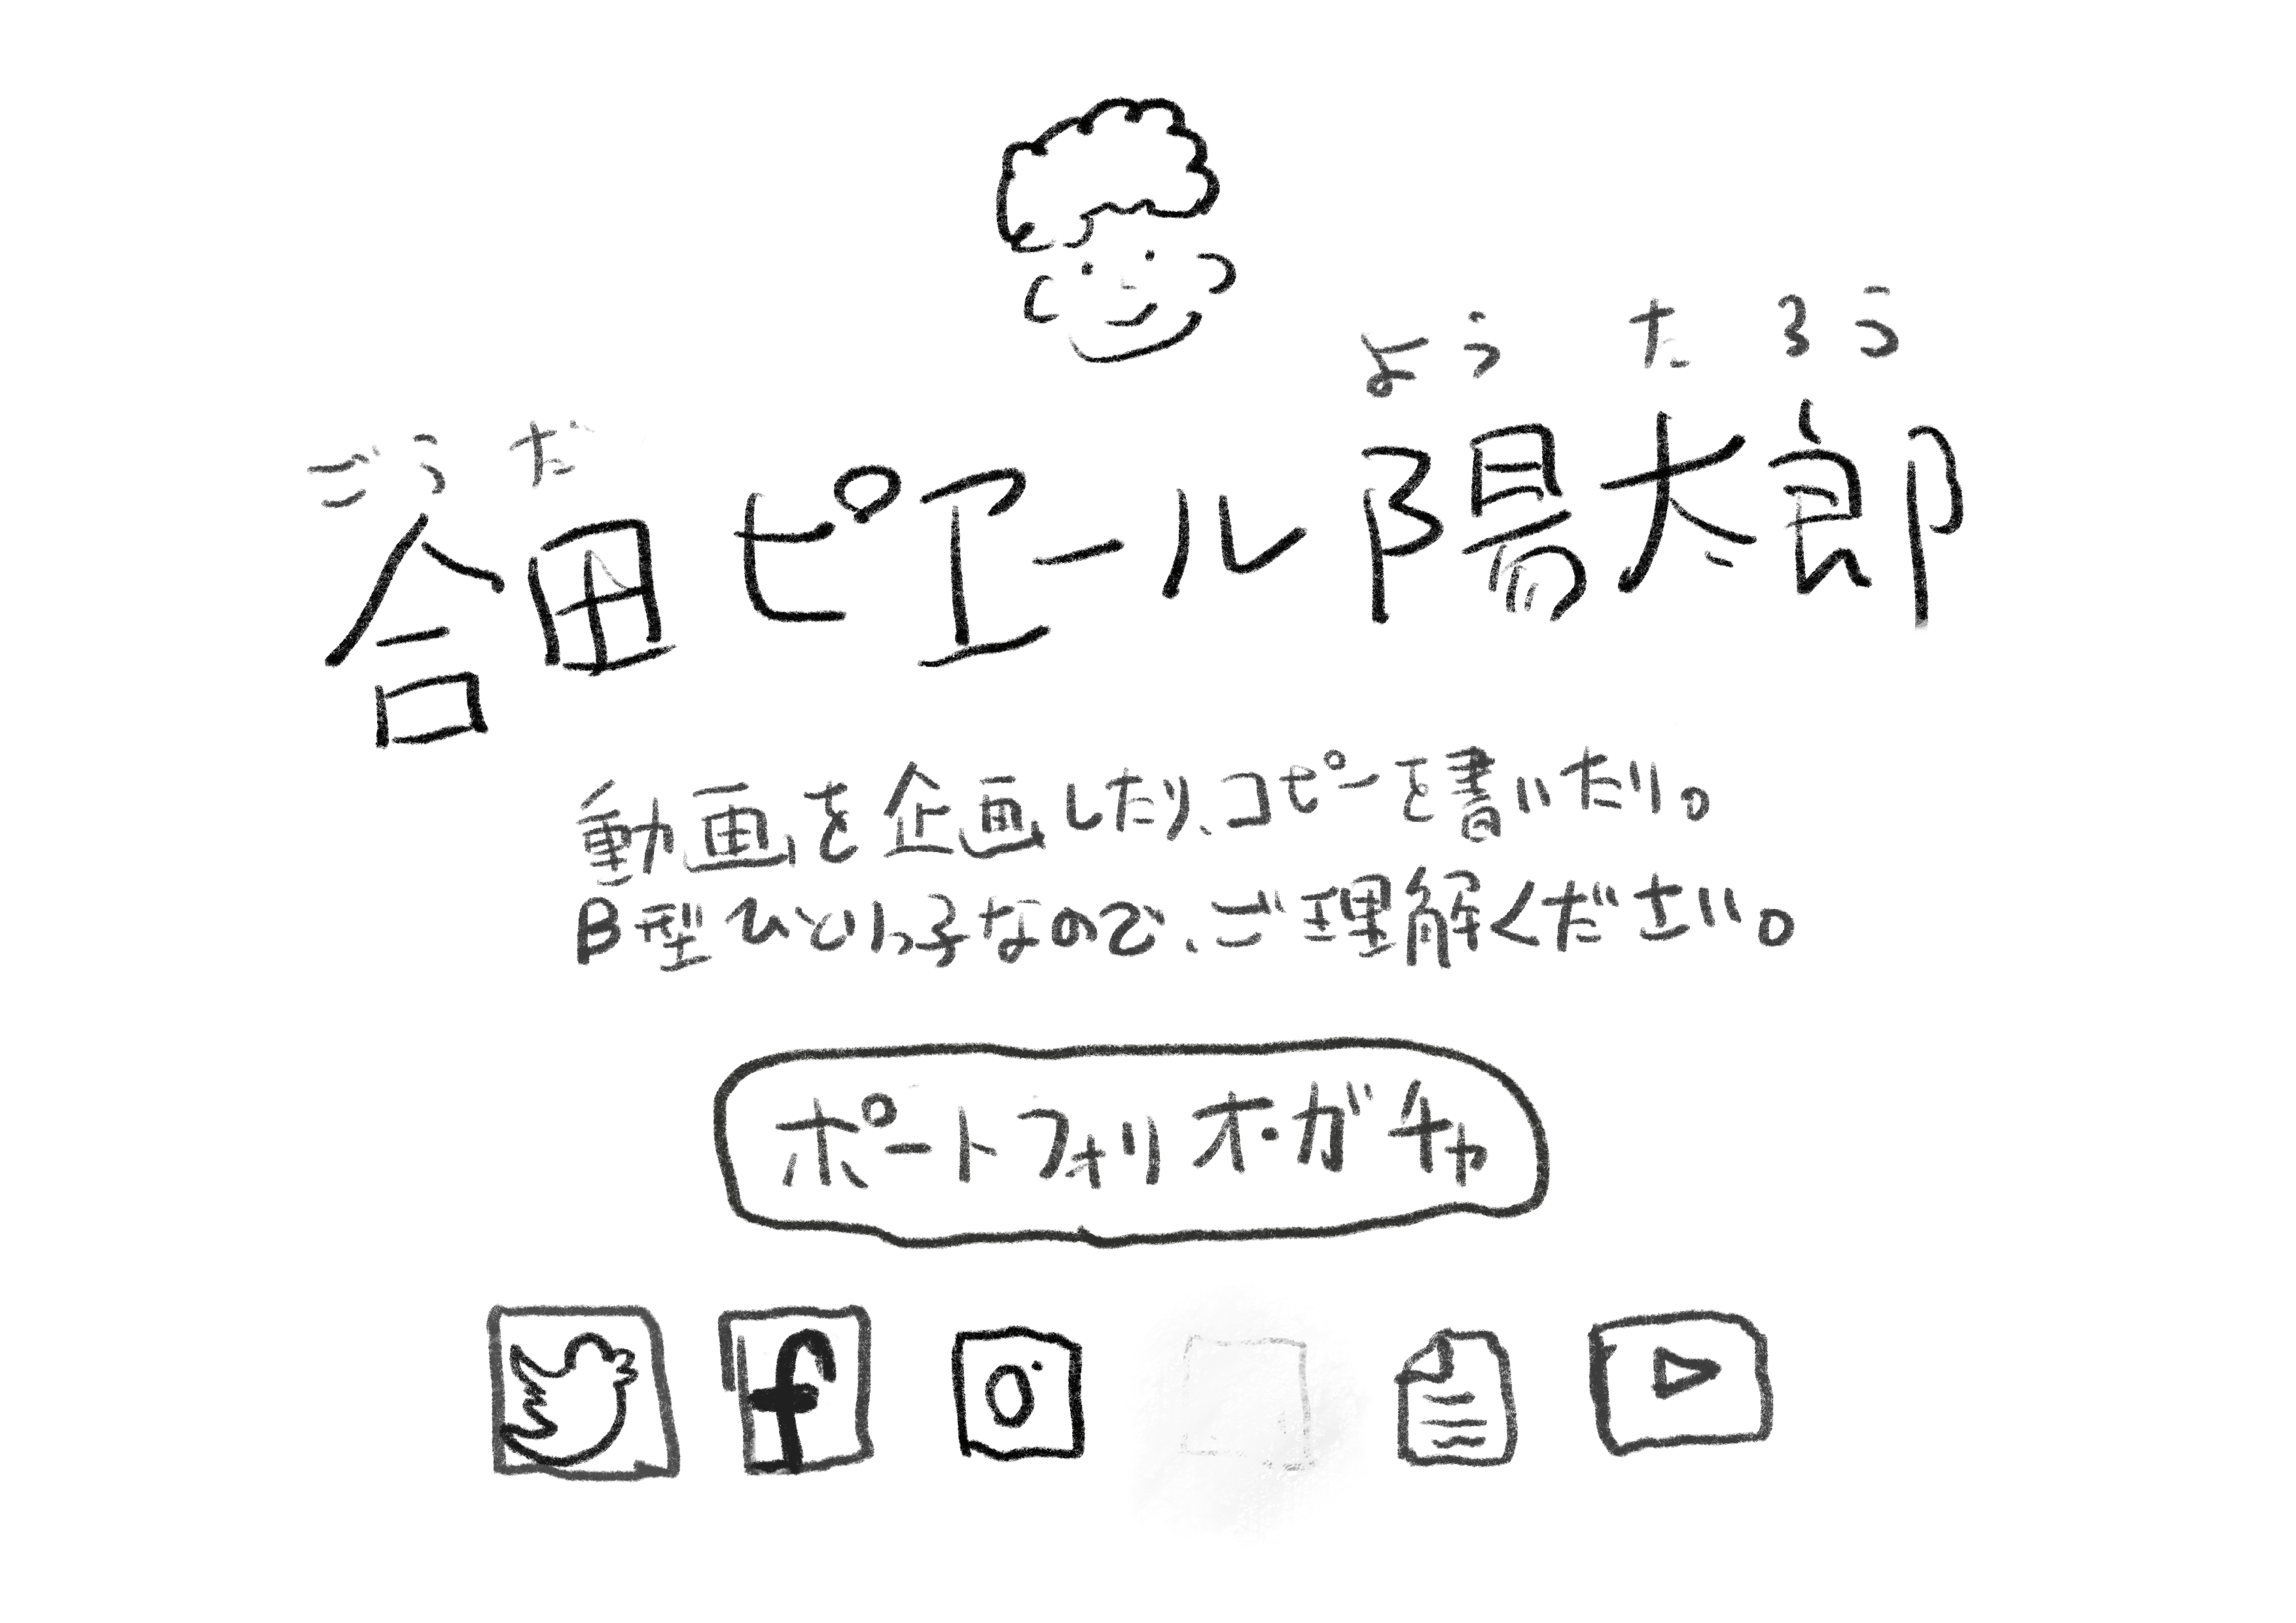 ようたろう
ごうだ
合田ピエール陽太郎
動画を企画したり、コピーを書いたり。
B型ひとりっ子なので、ご理解ください。
ポートフォリオ・ガチャ
f